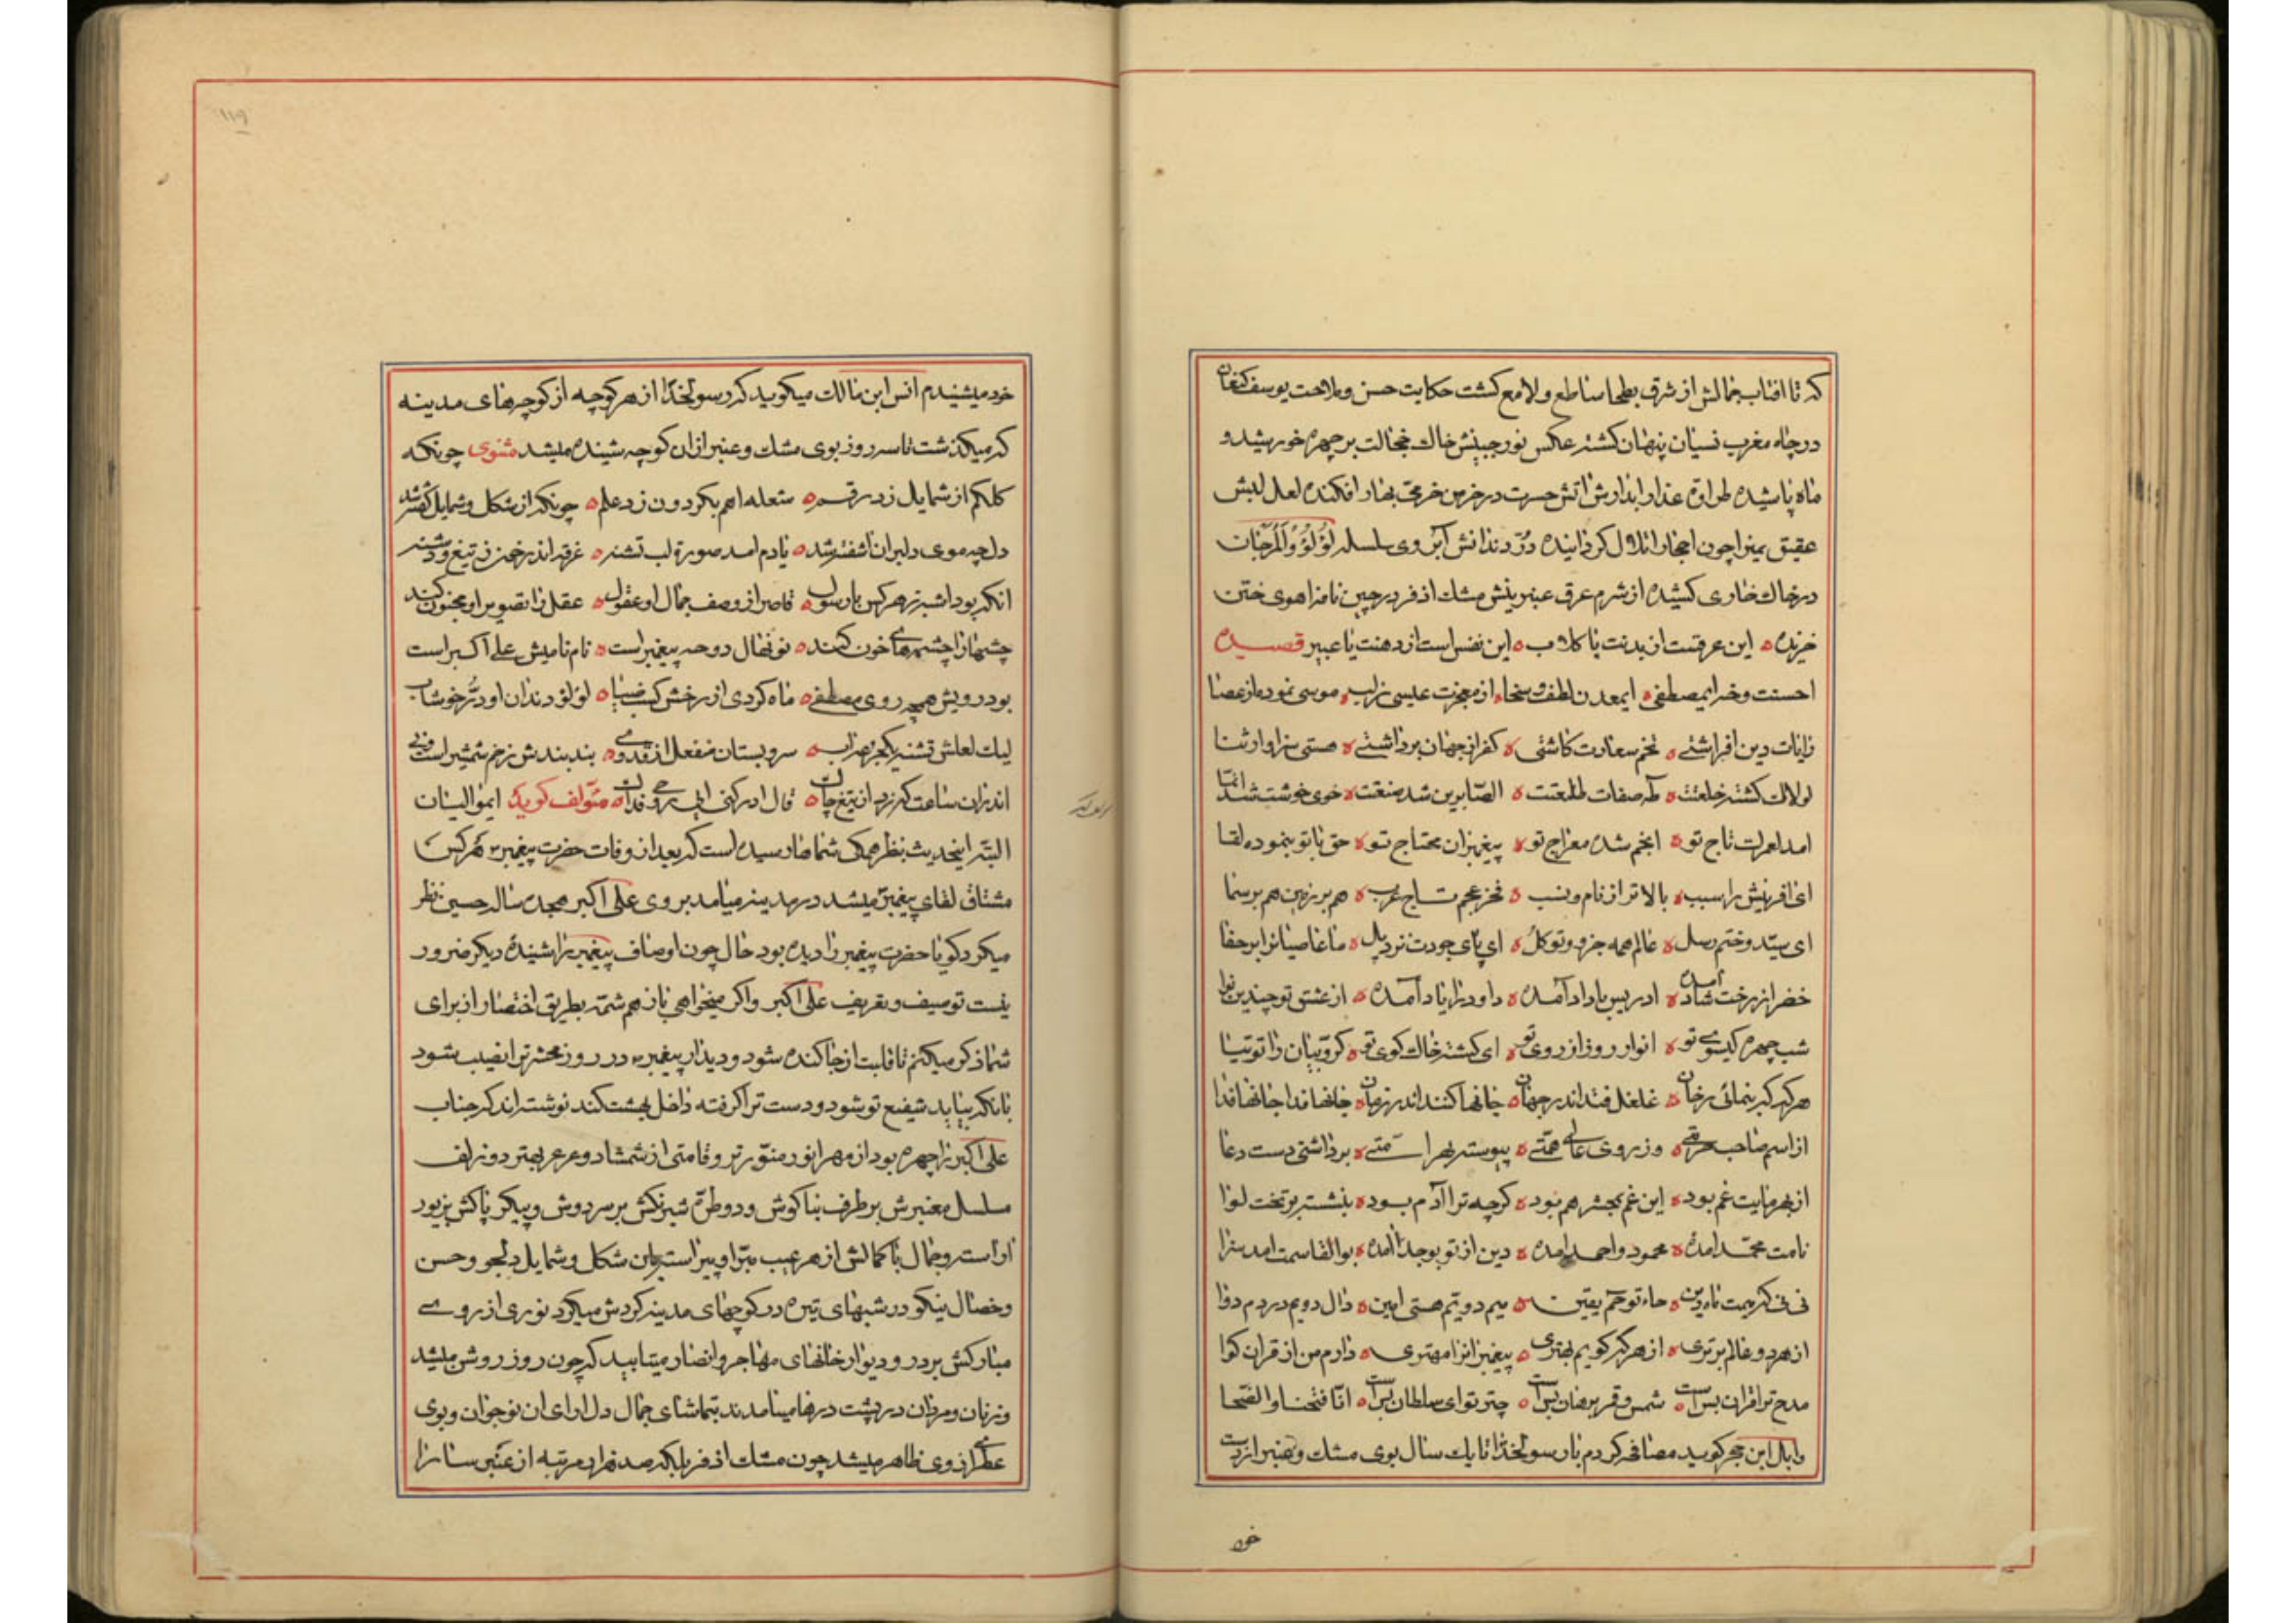 که تا افتاب جمالش از شرق بطحا ساطع و لامع کشت حکایت حسن و ملاحت یوسف کنعان
در چاه مغرب نسیان پنهان کشته عکس نور جبینش خاك خجالت بر چهره خورشید و
ماه پاشیده طراوة عذار ابدارش اتش حسرت در خرمن بهار افکنده لعل لبش
عقیق یمنرا چون احجار اتلال کردانیده دُرّ دندانش آبروی سلسله لُؤلُؤُ وَالمَرجَان
در خاك خاری کشیده از شرم عرق عنبرینش مشك اذفر در چین نافه اهوی ختن
خزیده این عرقست از بدنت یا کلاب این نفس است از دهنت یا عبیر قصیده
احسنت وخه ایمصطفی ایمعدن لطف و سخا از معجزت عیسی موسی نموده از عصا
رایات دین افراشتی تخم سعادت کاشتی کفر از جهان برداشتی هستی سزاوار ثنا
لولاك کشته خلعتت طه صفات طلعتت الصّابرین شد منقبت خوی خوشت شد انّما
امد لعمرك تاج تو انجم شده معراج تو پیغمبران محتاج تو حق با تو بنموده لقا
ای افرینش را سبب بالاتر از نام و نسب فخر عجم تاج عرب هم بر زمین هم بر سما
ای سیّد و ختم رسل عالم همه جزو و تو کل ای پای جودت نرد پل ما عاصیانرا بر حفا
خضر از رخت شاد آمده ادریس با داد آمده داود را یاد آمده از عشق تو چندین نوا
شب چهره کیسوی تو انوار روز از روی تو ای کشته خاك کوی تو کروّبیان را توتیا
هر که که بنمائی رخان غلغل فتد اندر جهان جانها کنند اندر زمان جانها فدا جانها فدا
از اسم صاحب حرمتی وز روی عالی همّتی پیوسته بهر امّتی برداشتی دست دعا
از بهر مایت غم بود این غم بجشر هم بود کرچه ترا آدم بود بنشسته بر تخت لوا
نامت محمّد امده محمود و احمد امده دین از تو بوجد امده بوالقاسمت امد سزا
نی نی که میمت ماه دین حاء تو حم یقین میم دویم هستی امین دال دویم دردم دوا
از هر دو عالم برتری از هر که کویم بهتری پیغمبرانرا مهتری دارم من از قران کوا
مدح ترا قران بس است شمس و قمر برهان بس است چتر تو ای سلطان بس است انّا فتحنا و الضّحا
وابل ابن حجر کوید مصافحه کردم با رسولخدا تا یك سال بوی مشك و عنبر از دست
خود
خود میشنیدم انس ابن مالك میکوید که رسولخدا از هر کوچه از کوچهای مدینه
که میکذشت تا سه روز بوی مشك و عنبر از ان کوچه شنیده میشد مثنوی چونکه
کلکم از شمایل زد رقم شعله اهم بکردون زد علم چونکه از شکل و شمایل کفته شد
دل چه موی دلبران اشفته شد یادم امد صورة لب تشنه غرقه اندر خون ز تیغ و دشنه
انکه بود اشبه ز هر کس با رسول قاصر از وصف جمال او عقول عقل را تصویر او مجنون کند
چشمها را چشمهای خون کند نونهال دوحه پیغمبر است نام نامیش علی اکبر است
بود رویش همچه روی مصطفی ماه کردی از رخش کسب ضیا لؤلؤ دندان او دُرّ خوشاب
لیك لعلش تشنه یکجرعه اب سرو بستان منفعل از قد وی بند بندش زخم شمشیر است و نی
اندران ساعت که زد از تیغ چاك قال ادرکنی ابی روحی فداك مؤلف کوید ایموالیان
البتّه اینحدیث بنظر همکی شماها رسیده است که بعد از وفات حضرت پیغمبر هر کس
مشتاق لقای پیغمبر میشد در مدینه میامد بروی علی اکبر هجده ساله حسین نظر
میکرد کویا حضرت پیغمبر را دیده بود حال چون اوصاف پیغمبر را شنیدهٔ دیکر ضرور
نیست توصیف و تعریف علی اکبر واکر میخواهی باز هم شمّه بطریق اختصار از برای
شما ذکر میکنم تا قلبت از جا کنده شود و دیدار پیغمبر در روز محشر ترا نصیب شود
تا انکه بیاید شفیع تو شود و دست ترا کرفته داخل بهشت کند نوشته اند که جناب
علی اکبر را چهره بود از مهر انور منوّرتر و قامتی از شمشاد و عرعر بهتر دو زلف
مسلسل معنبرش بر طرف بناکوش و دو طرّه شبرنکش بر سر دوش و پیکر پاکش بزیور
اراسته و جمال با کمالش از هر عیب مبّرا و پیراسته با این شکل و شمایل دلجو و حسن
و خصال نیکو در شبهای تیره در کوچهای مدینه کردش میکرد نوری از روی
مبارکش بر در و دیوار خانهای مهاجر و انصار میتابید که چون روز روشن میشد
و زنان و مردان در پشت درها میامدند بتماشای جمال دل ارای ان نوجوان و بوی
عطری از وی ظاهر میشد چون مشك اذفر بلکه صد هزار مرتبه از عنبر سارا